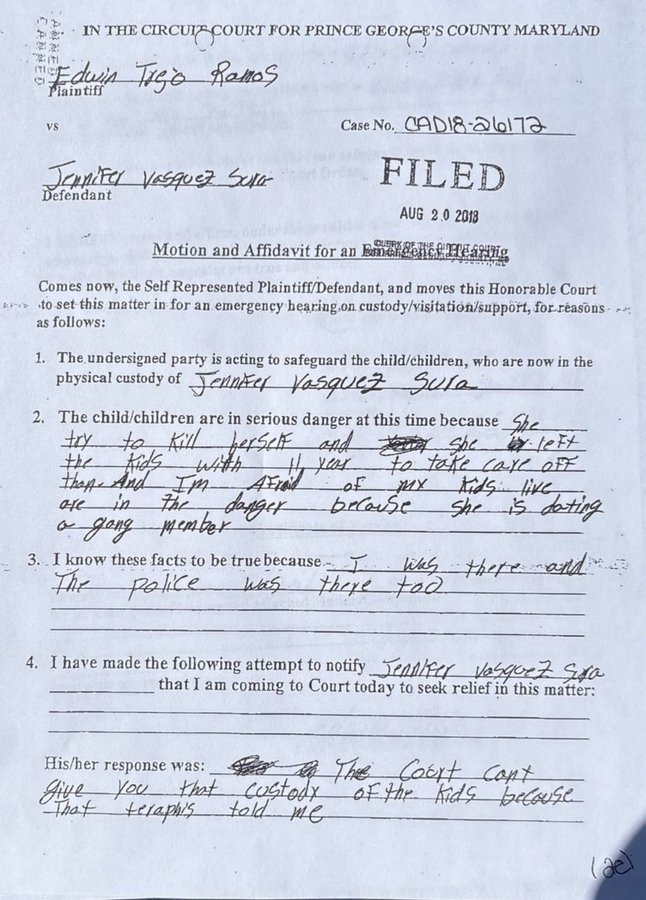 IN THE CIRCUIT COURT FOR PRINCE GEORGE'S COUNTY MARYLAND
Edwin Trejo Ramos
Plaintiff
vs
Case No. CAD18-26172
Jennifer Vasquez Sura
Defendant
FILED
AUG 20 2018
CLERK OF THE CIRCUIT COURT
Motion and Affidavit for an Emergency Hearing
Comes now, the Self Represented Plaintiff/Defendant, and moves this Honorable Court
to set this matter in for an emergency hearing on custody/visitation/support, for reasons
as follows:
1. The undersigned party is acting to safeguard the child/children, who are now in the
physical custody of Jennifer Vasquez Sura
2. The child/children are in serious danger at this time because She
try to kill herself and she left
the kids with 11 year to take care off
them And I'm Afraid of my kids live
are in the danger because she is dating
a gang member
3. I know these facts to be true because I was there and
The police was there too
4. I have made the following attempt to notify Jennifer Vasquez Sura
that I am coming to Court today to seek relief in this matter:
His/her response was: The Court cant
give you that custody of the kids because
that teraphis told me